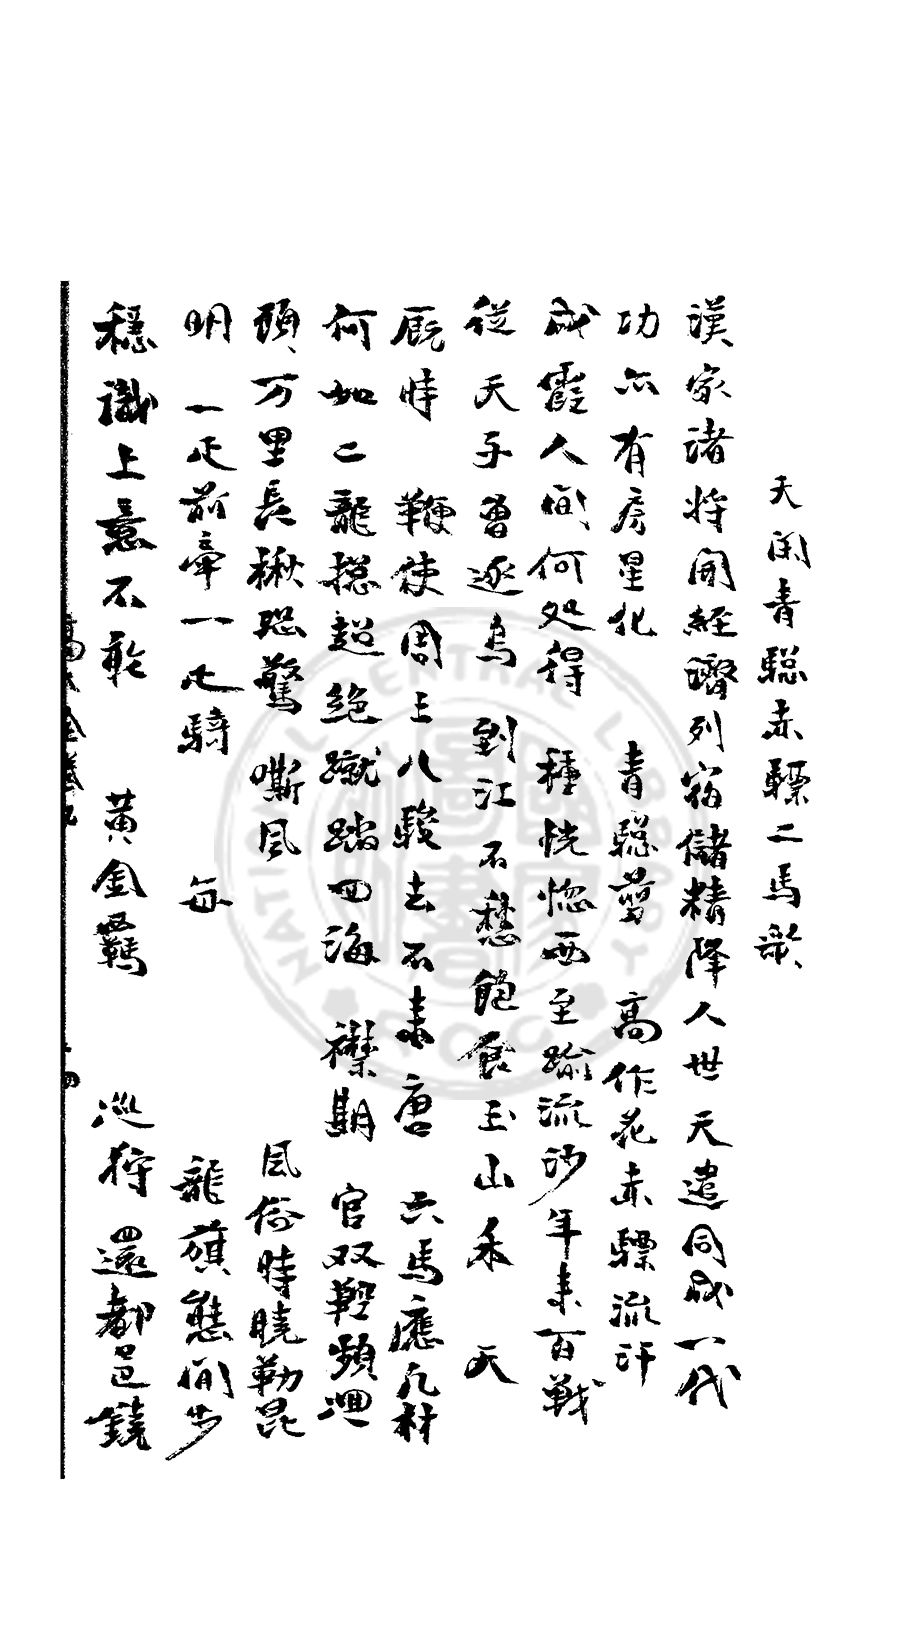 天閑青驄赤驃二馬歌
漢家諸將開經濟列宿儲精降人世 天遣同成一代
功亦有房星化 青驄剪 高作花赤驃流汗
成霞人間何処得 種恍惚西至踰流沙年来百戰
從天子曾逐烏 到江不愁飽食玉山禾 天
厩時 鞭使周王八駿去不来唐 六馬應凡材
何如二龍摠超絶蹴踏四海 襟期 官双鞚頻迴
頭万里長楸恐驚 嘶風 風俗時曉勒昆
明 一疋前牽一疋騎 每 龍旗熊閒步
穩識上意不乾 黃金羈 巡狩 還都邑鐃